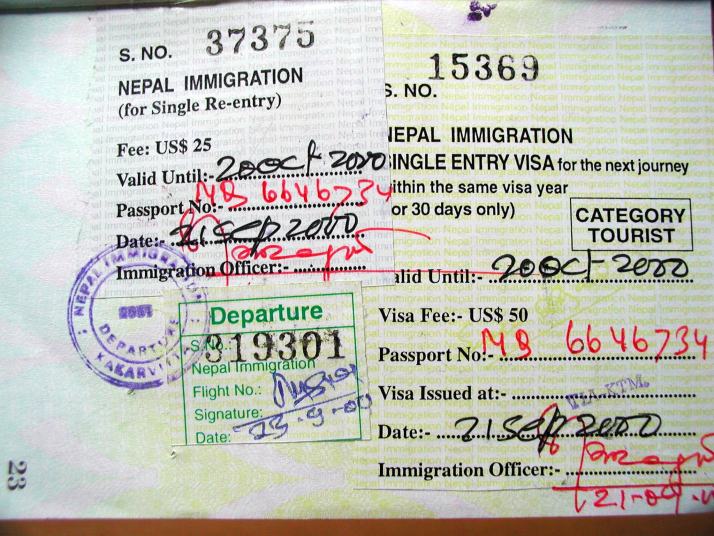 S. NO. 37375
NEPAL IMMIGRATION
(for Single Re-entry)
Fee: US$ 25
Valid Until:- 20 Oct 2000
Passport No:- MB 6646734
Date:- 21 Sep 2000
Immigration Officer:-
15369
S. NO.
NEPAL IMMIGRATION
SINGLE ENTRY VISA for the next journey
ithin the same visa year
or 30 days only)
CATEGORY
TOURIST
alid Until:- 20 Oct 2000
Visa Fee:- US$ 50
Passport No:- MB 6646734
Visa Issued at:- TIA-KTM.
Date:- 21 Sep 2000
Immigration Officer:-
21-09
NEPAL IMMIGRATION
DEPARTURE
KAKARVITTA
Departure
S.N. 319301
Nepal Immigration
Flight No.:
Signature:
Date: 23-9-00
23